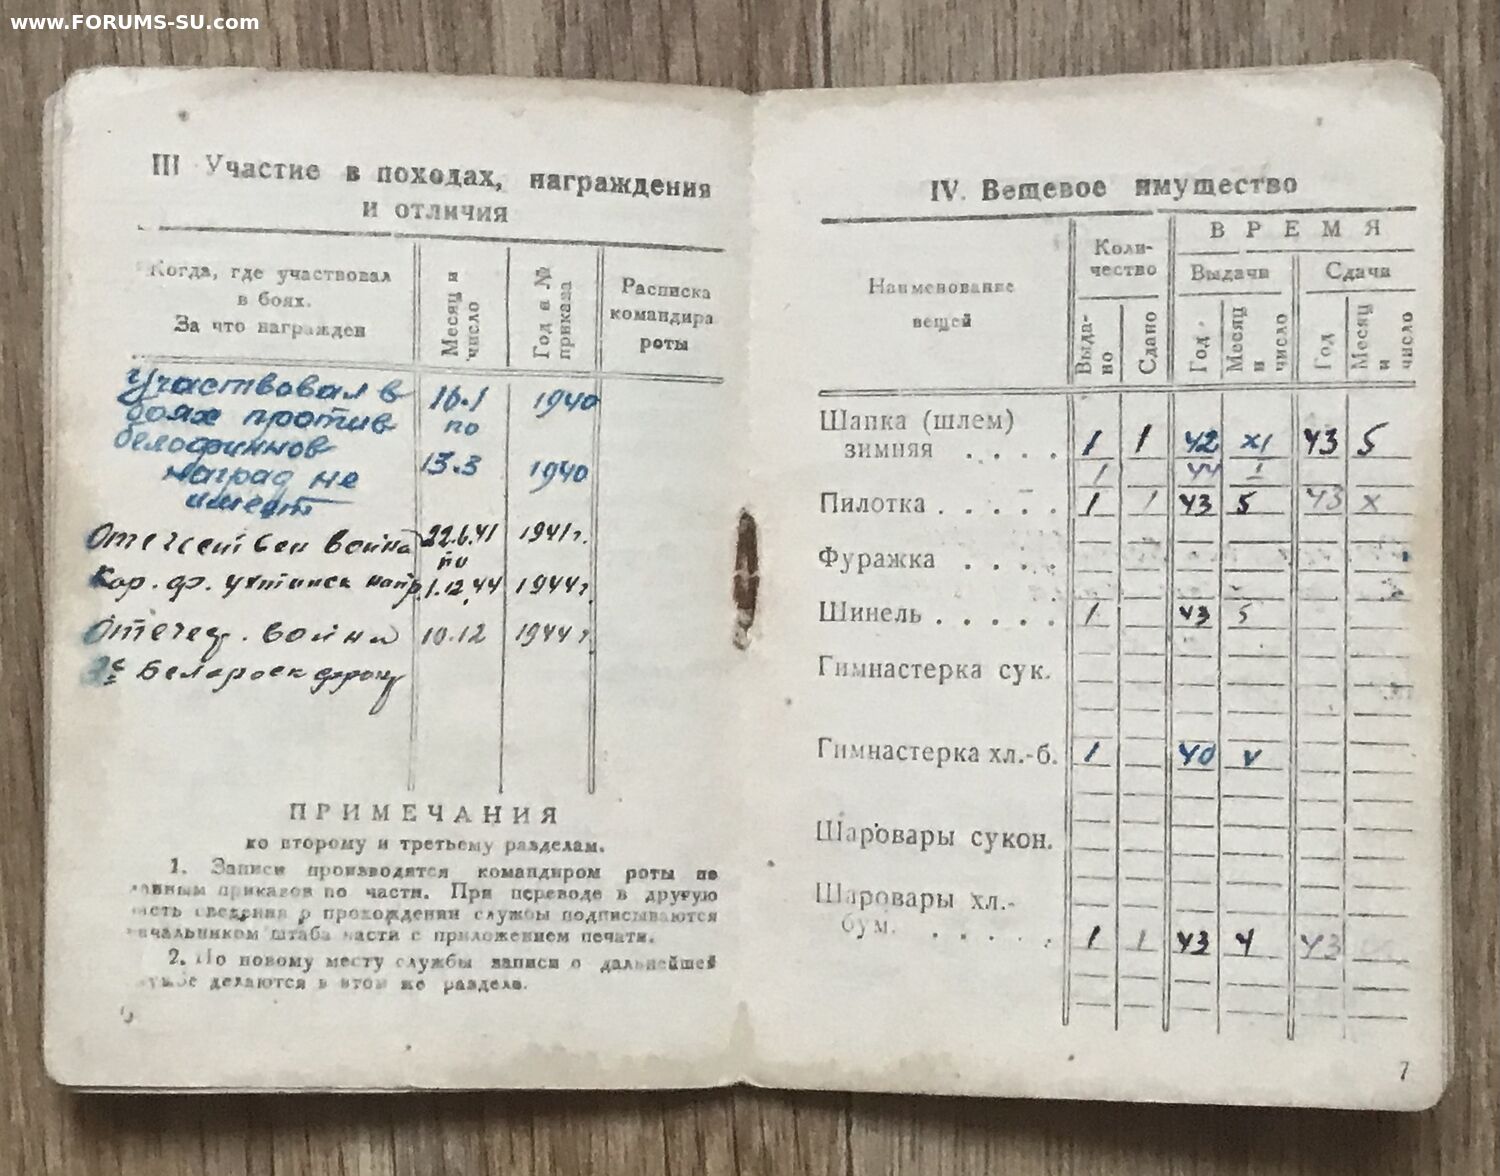 www.FORUMS-SU.com
III Участие в походах, награждения
и отличия
Когда, где участвовал
в боях.
За что награжден
Месяц и
число
Год и №
приказа
Расписка
командира
роты
Участвовал в 16.1 1940
боях против по
белофиннов 13.3 1940
наград не
имеет
Отечествен война 22.6.41 1941 г.
по
Кар. ф. Ухтинск напр. 1.12.44 1944 г.
Отечеств. война 10.12 1944 г.
2й Белароск фронт
ПРИМЕЧАНИЯ
ко второму и третьему разделам.
1. Записи производятся командиром роты на
данным приказов по части. При переводе в другую
часть сведения о прохождении службы подписываются
начальником штаба части с приложением печати.
2. По новому месту службы записи о дальнейшей
службе делаются в этом же разделе.
IV. Вещевое имущество
Наименование
вещей
Коли-
чество
ВРЕМЯ
Выдачи Сдачи
Выда-
но
Сдано
Год
Месяц
и
число
Год
Месяц
и
число
Шапка (шлем)
зимняя . . . . 1 1 42 XI 43 5
1 44 I
Пилотка . . . . . 1 1 43 5 43 X
Фуражка . . . .
Шинель . . . . . 1 43 5
Гимнастерка сук.
Гимнастерка хл.-б. 1 40 V
Шаровары сукон.
Шаровары хл.-
бум. . . . . 1 1 43 4 43
7